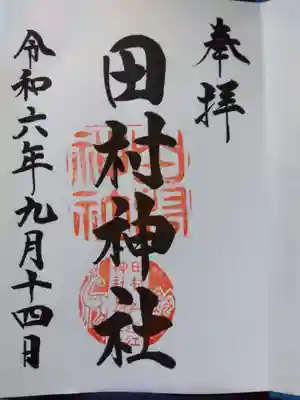 奉拝
田村神社
令和六年九月十四日